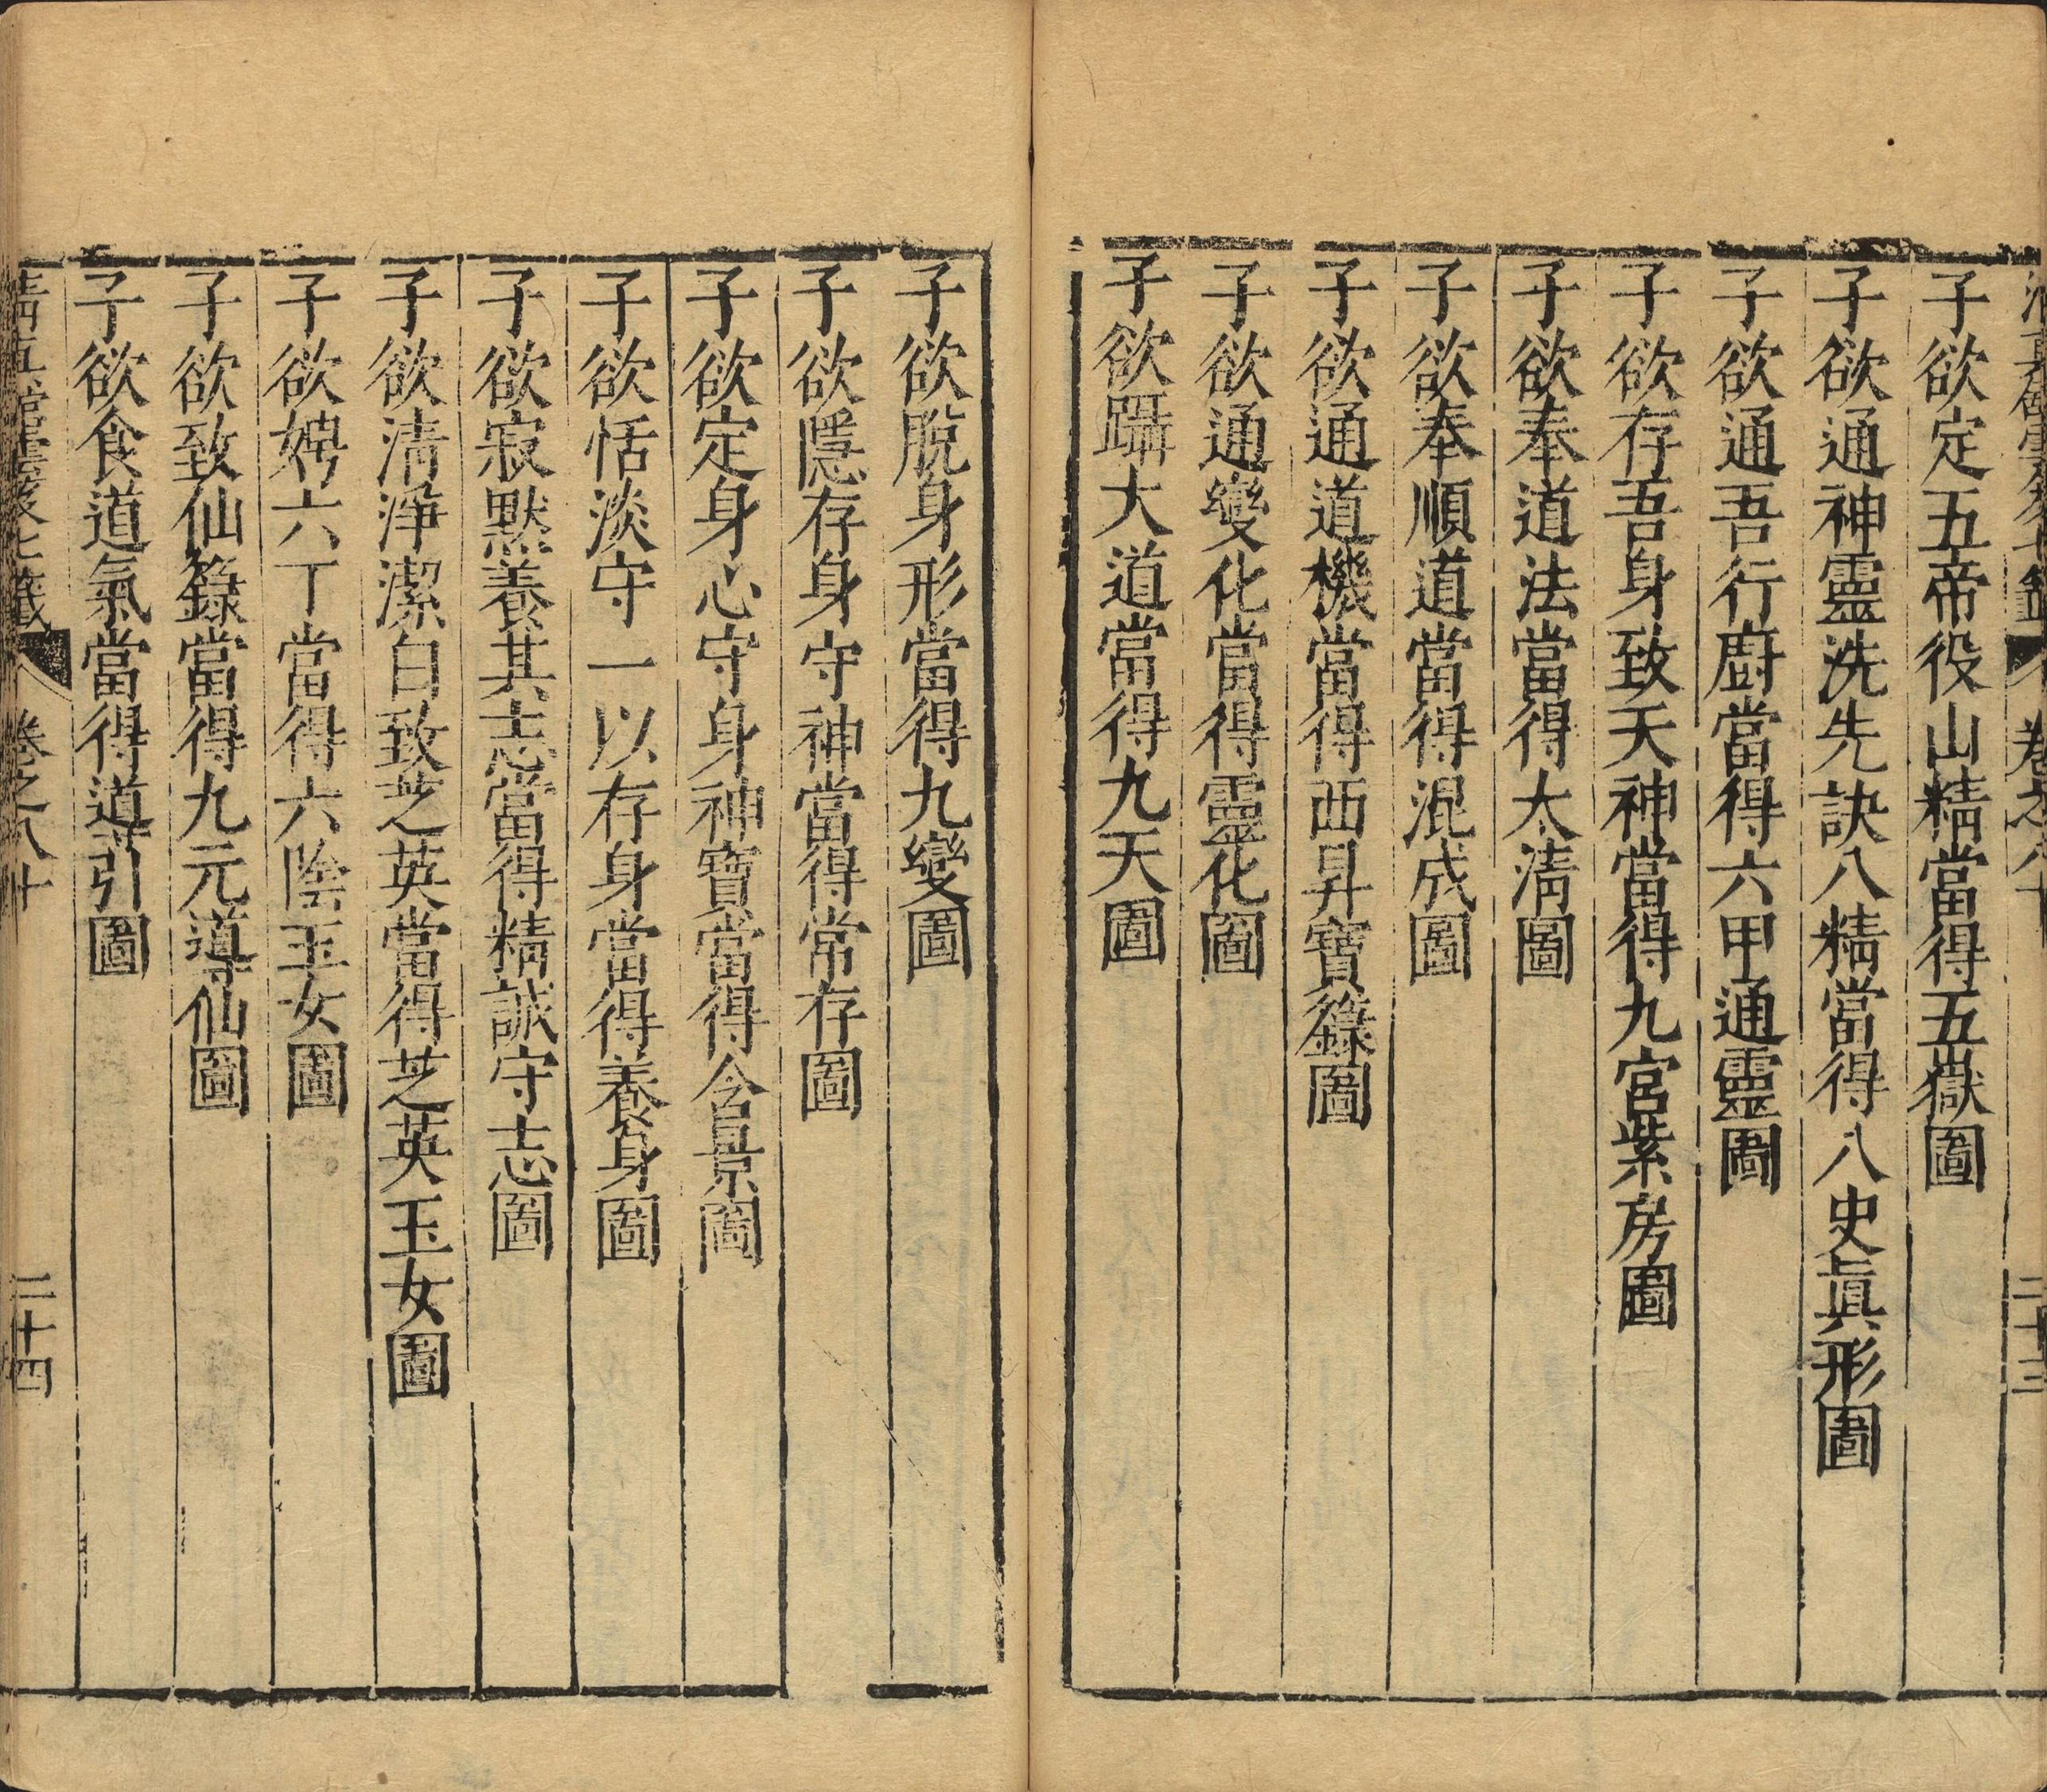 卷之八十
二十三
子欲定五帝役山精當得五嶽圖
子欲通神靈洗先訣八精當得八史眞形圖
子欲通吾行廚當得六甲通靈圖
子欲存吾身致天神當得九宮紫房圖
子欲奉道法當得太清圖
子欲奉順道當得混成圖
子欲通道機當得西昇寶籙圖
子欲通變化當得靈化圖
子欲躡大道當得九天圖
子欲脫身形當得九變圖
子欲隱存身守神當得常存圖
子欲定身心守身神寶當得含景圖
子欲恬淡守一以存身當得養身圖
子欲寂默養其志當得精誠守志圖
子欲清淨潔白致芝英當得芝英玉女圖
子欲娉六丁當得六陰玉女圖
子欲致仙籙當得九元導仙圖
子欲食道氣當得導引圖
卷之八十
二十四